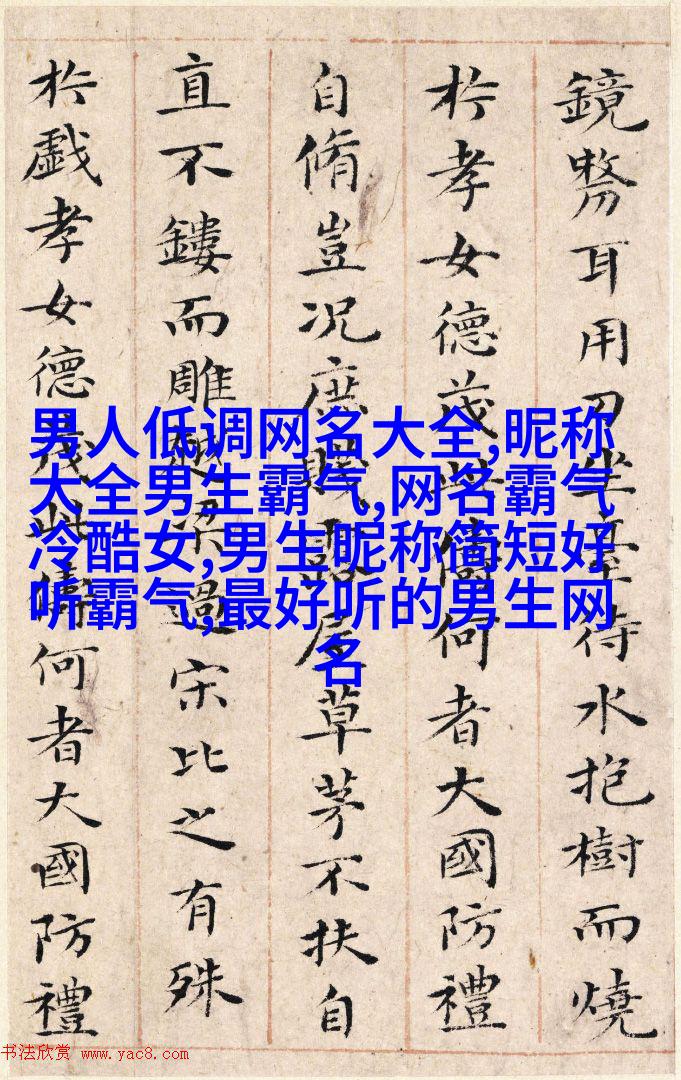 鏡剺耳用刀坐臺待水抱樹而燒
扵孝女德茂此儔何者大國防禮
自脩豈况庶賤露屋草茅不扶自
直不鏤而雕越梁過宋比之有殊
扵戲孝女德茂此儔何者大國防禮
男人低调网名大全,昵称
大全男生霸气,网名霸气
冷酷女,男生昵称简短好
听霸气,最好听的男生网
名
书法欣赏 www.yac8.com